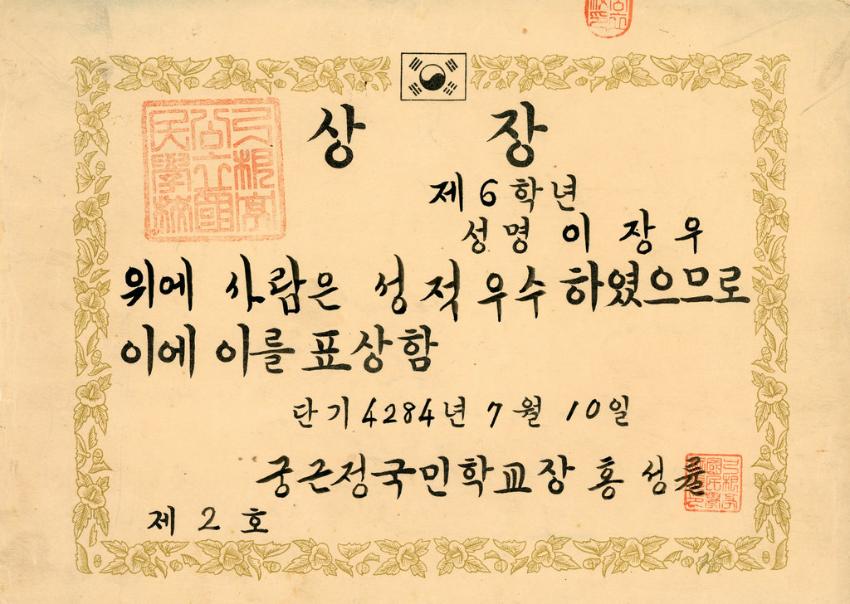 상 장
제6학년
성명 이장우
위에 사람은 성적우수하였으므로
이에 이를 표상함
단기4284년 7월 10일
궁근정국민학교장 홍성률
제 2 호